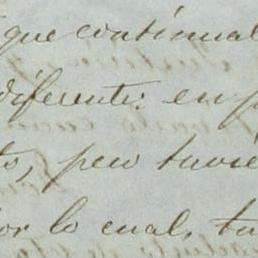 que continual
diferente: en p
to, pero tuvie
or lo cual, tu